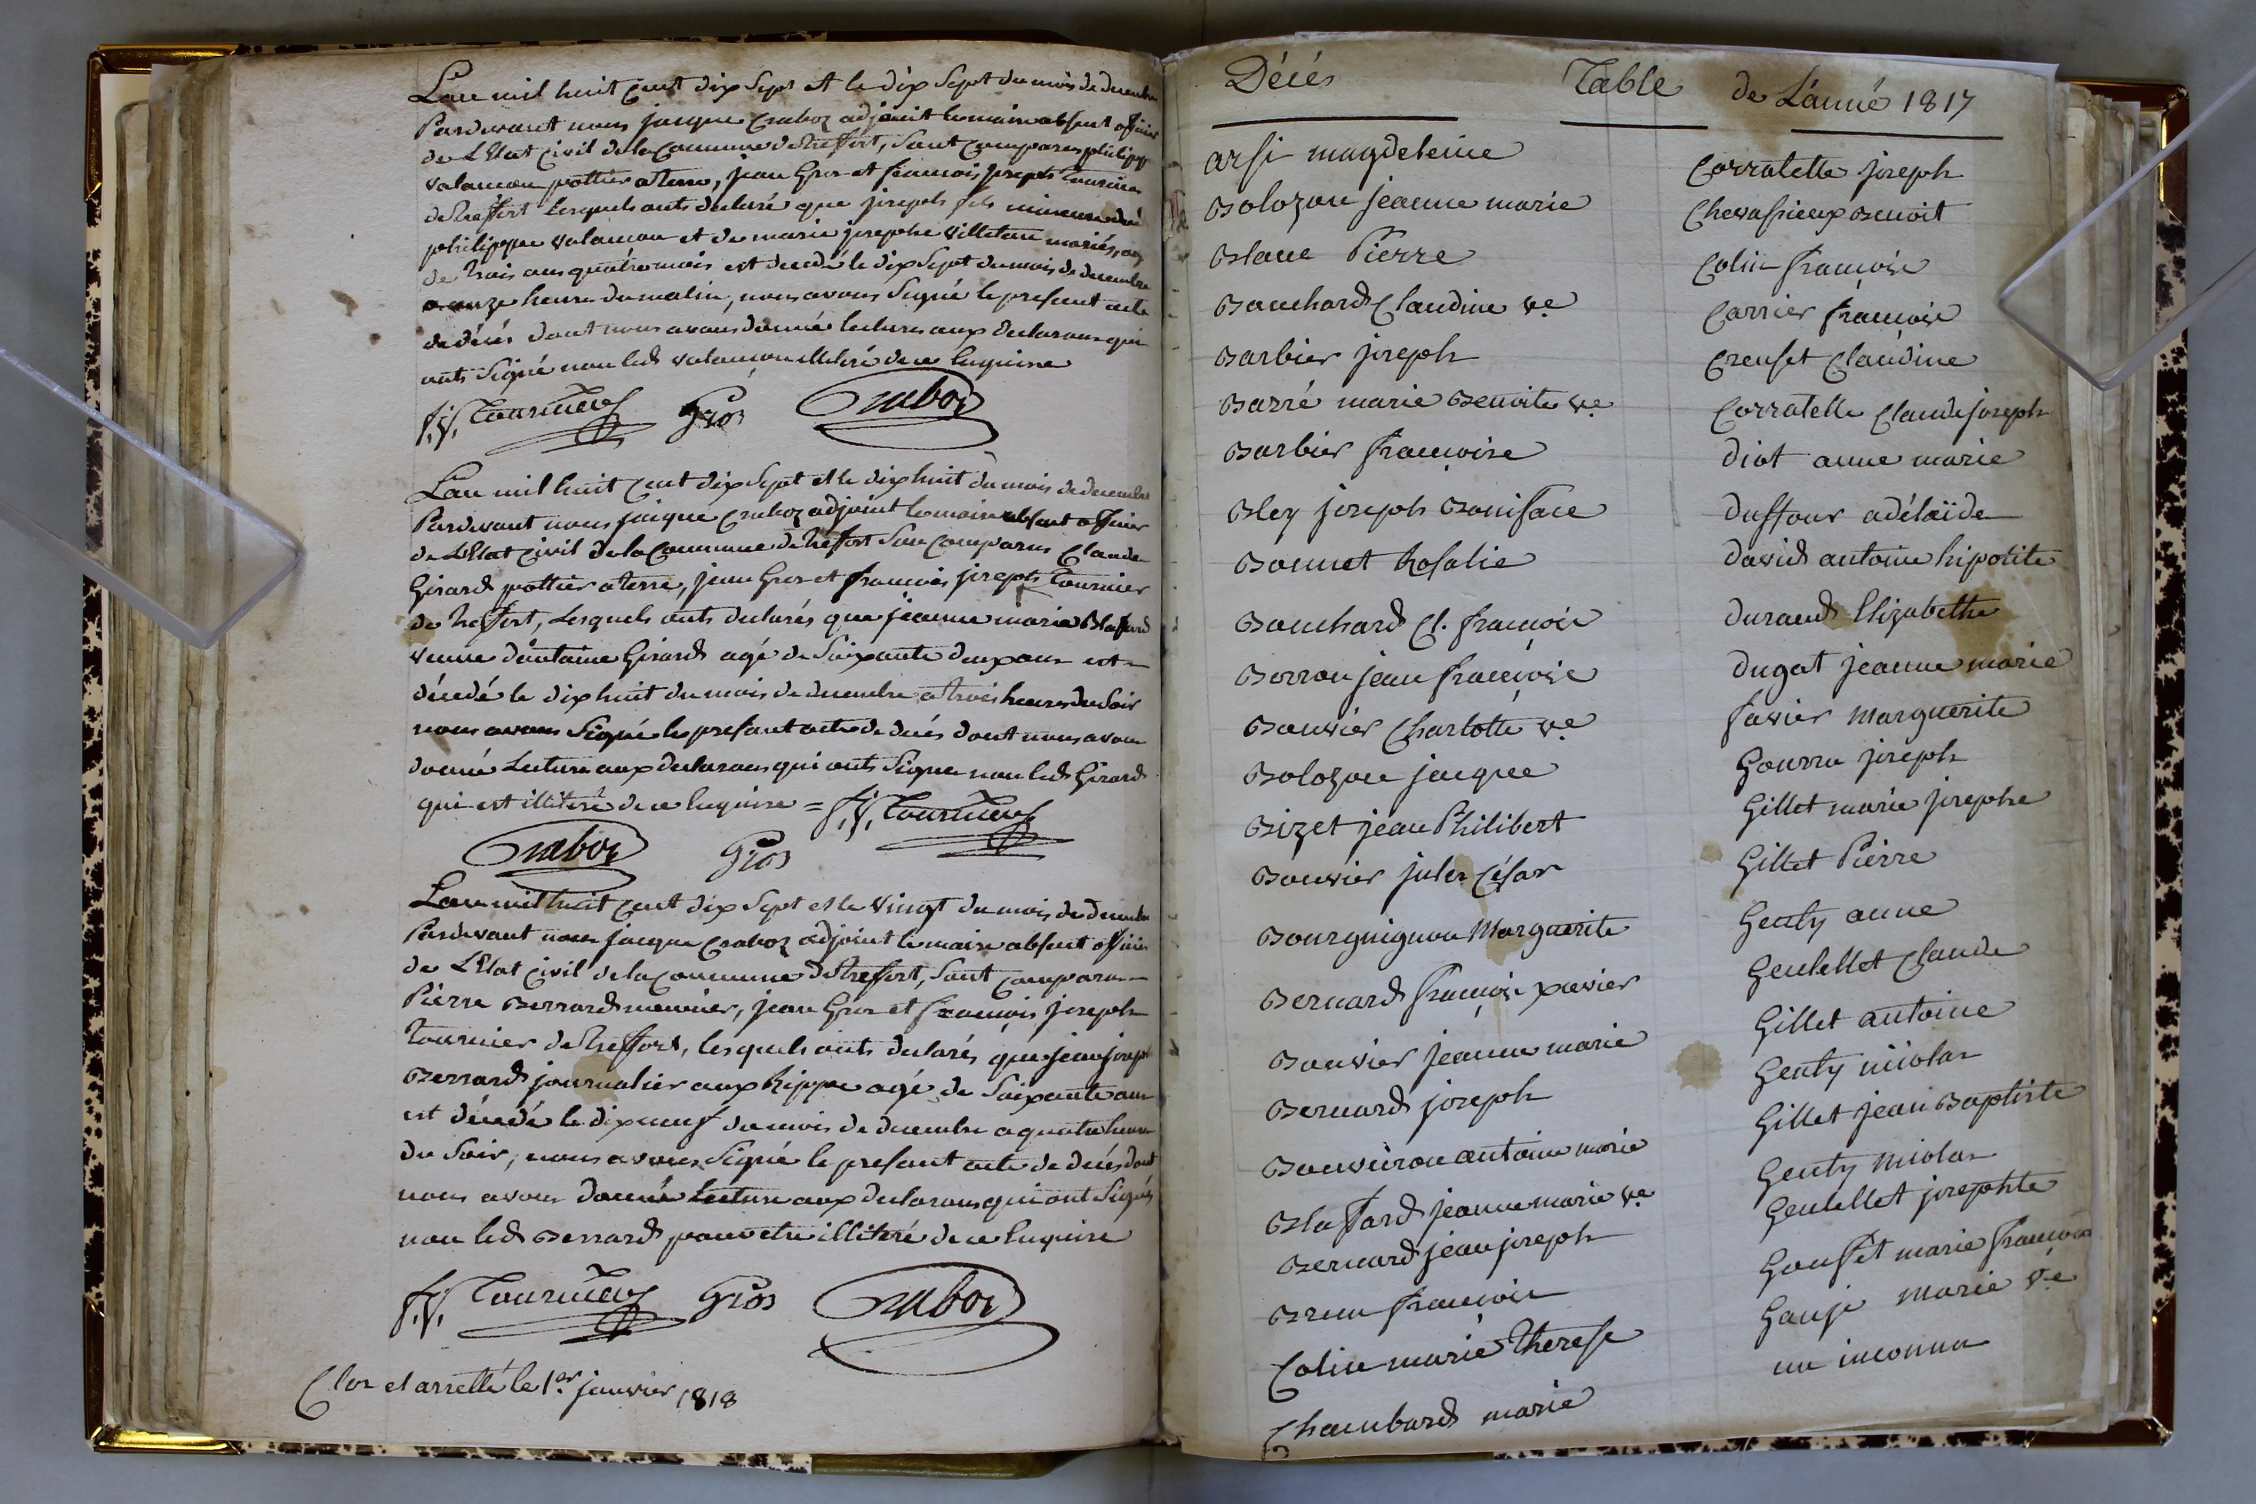 L'an mil huit cent dix sept et le dix sept du mois de decembre
Pardevant nous jacque Craboz adjoint le maire absent officier
de L'Etat Civil de la Commune de Treffort, Sont Comparus philippe
valancon pottier a terre, jean Gros et francois joseph Tournier
de Treffort Lesquels onts declaré que joseph fils mineure de
philippe valancon et de marie josephe villetan mariés, agé
de trois ans quatre mois est decedé le dix Sept du mois de decembre
a onze heures du matin, nous avons Signé le present acte
de décés dont nous avons donné lecture aux declarans qui
onts Signé non led valancon illitéré de ce Enquise
f.j. Tournier Gros Craboz
L'an mil huit cent dix Sept et le dix huit du mois de decembre
Pardevant nous jacque Craboz adjoint le maire absent officier
de L'Etat Civil de la Commune de Treffort Son Comparus Claude
Girard pottier a terre, jean Gros et francois joseph Tournier
de Treffort, Lesquels onts declarés que jeanne marie Blaffard
veuve d'antoine Girard agé de Soixante deux ans est
décedé le dix huit du mois de decembre a trois heures du Soir
nous avons Signé le presant acte de decés dont nous avons
donné Lecture aux declarans qui onts Signer non led Girard
qui est illitéré de ce Enquise = f.j. Tournier
Craboz Gros
L'an mil huit cent dix Sept et le vingt du mois de decembre
Pardevant nous jacque Craboz adjoint le maire absent officier
de L'Etat Civil de la Commune de Treffort, Sont Comparu
Pierre Berrard meunier, jean Gros et francois joseph
Tournier de Treffort, lesquels onts declarés que jean joseph
Berrard journalier aux hippe agé de Soixante ans
est décédé le dix neuf du mois de decembre a quatre heure
du Soir, nous avons Signé le present acte de decés dont
nous avons donné lecture aux declarans qui ont Signés
non led Berrard pour etre illiteré de ce Enquise
f.j. Tournier Gros Craboz
Clos et arretté le 1.er janvier 1818
Décés Table de L'anné 1817
arsi magdeleine
Bolozon jeanne marie
Blanc Pierre
Bouchard Claudine v.e
Barbier joseph
Barré marie Benoite v.e
Barbier francoise
Bley joseph Boniface
Bonnet Rosalie
Bouchard Cl. francois
Borron jean françois
Bouvier Charlotte v.e
Bolozon jacque
Bizet jean Philibert
Bouvier jules César
Bourguignon Marguerite
Bernard françois xavier
Bouvier jeanne marie
Bernard joseph
Bouveiron antoine marie
Blaffard jeanne marie v.e
Bernard jean joseph
Brun francois
Colin marie Therese
Chambard marie
Corratelle joseph
Chevassieux Benoit
Colin francoise
Carrier françoise
Creuset Claudine
Corratelle Claude joseph
diot anne marie
duffour adélaïde
david antoine hipolite
durand Elizabethe
dugat jeanne marie
favier Marguerite
Gourru joseph
Gillet marie josephe
Gillet Pierre
Genty anne
Genlellet Claude
Gillet antoine
Genty nicolas
Gillet jean Baptiste
Genty Nicolas
Genlellet josephte
Gousset marie francoise
Gauje Marie v.e
un inconnu